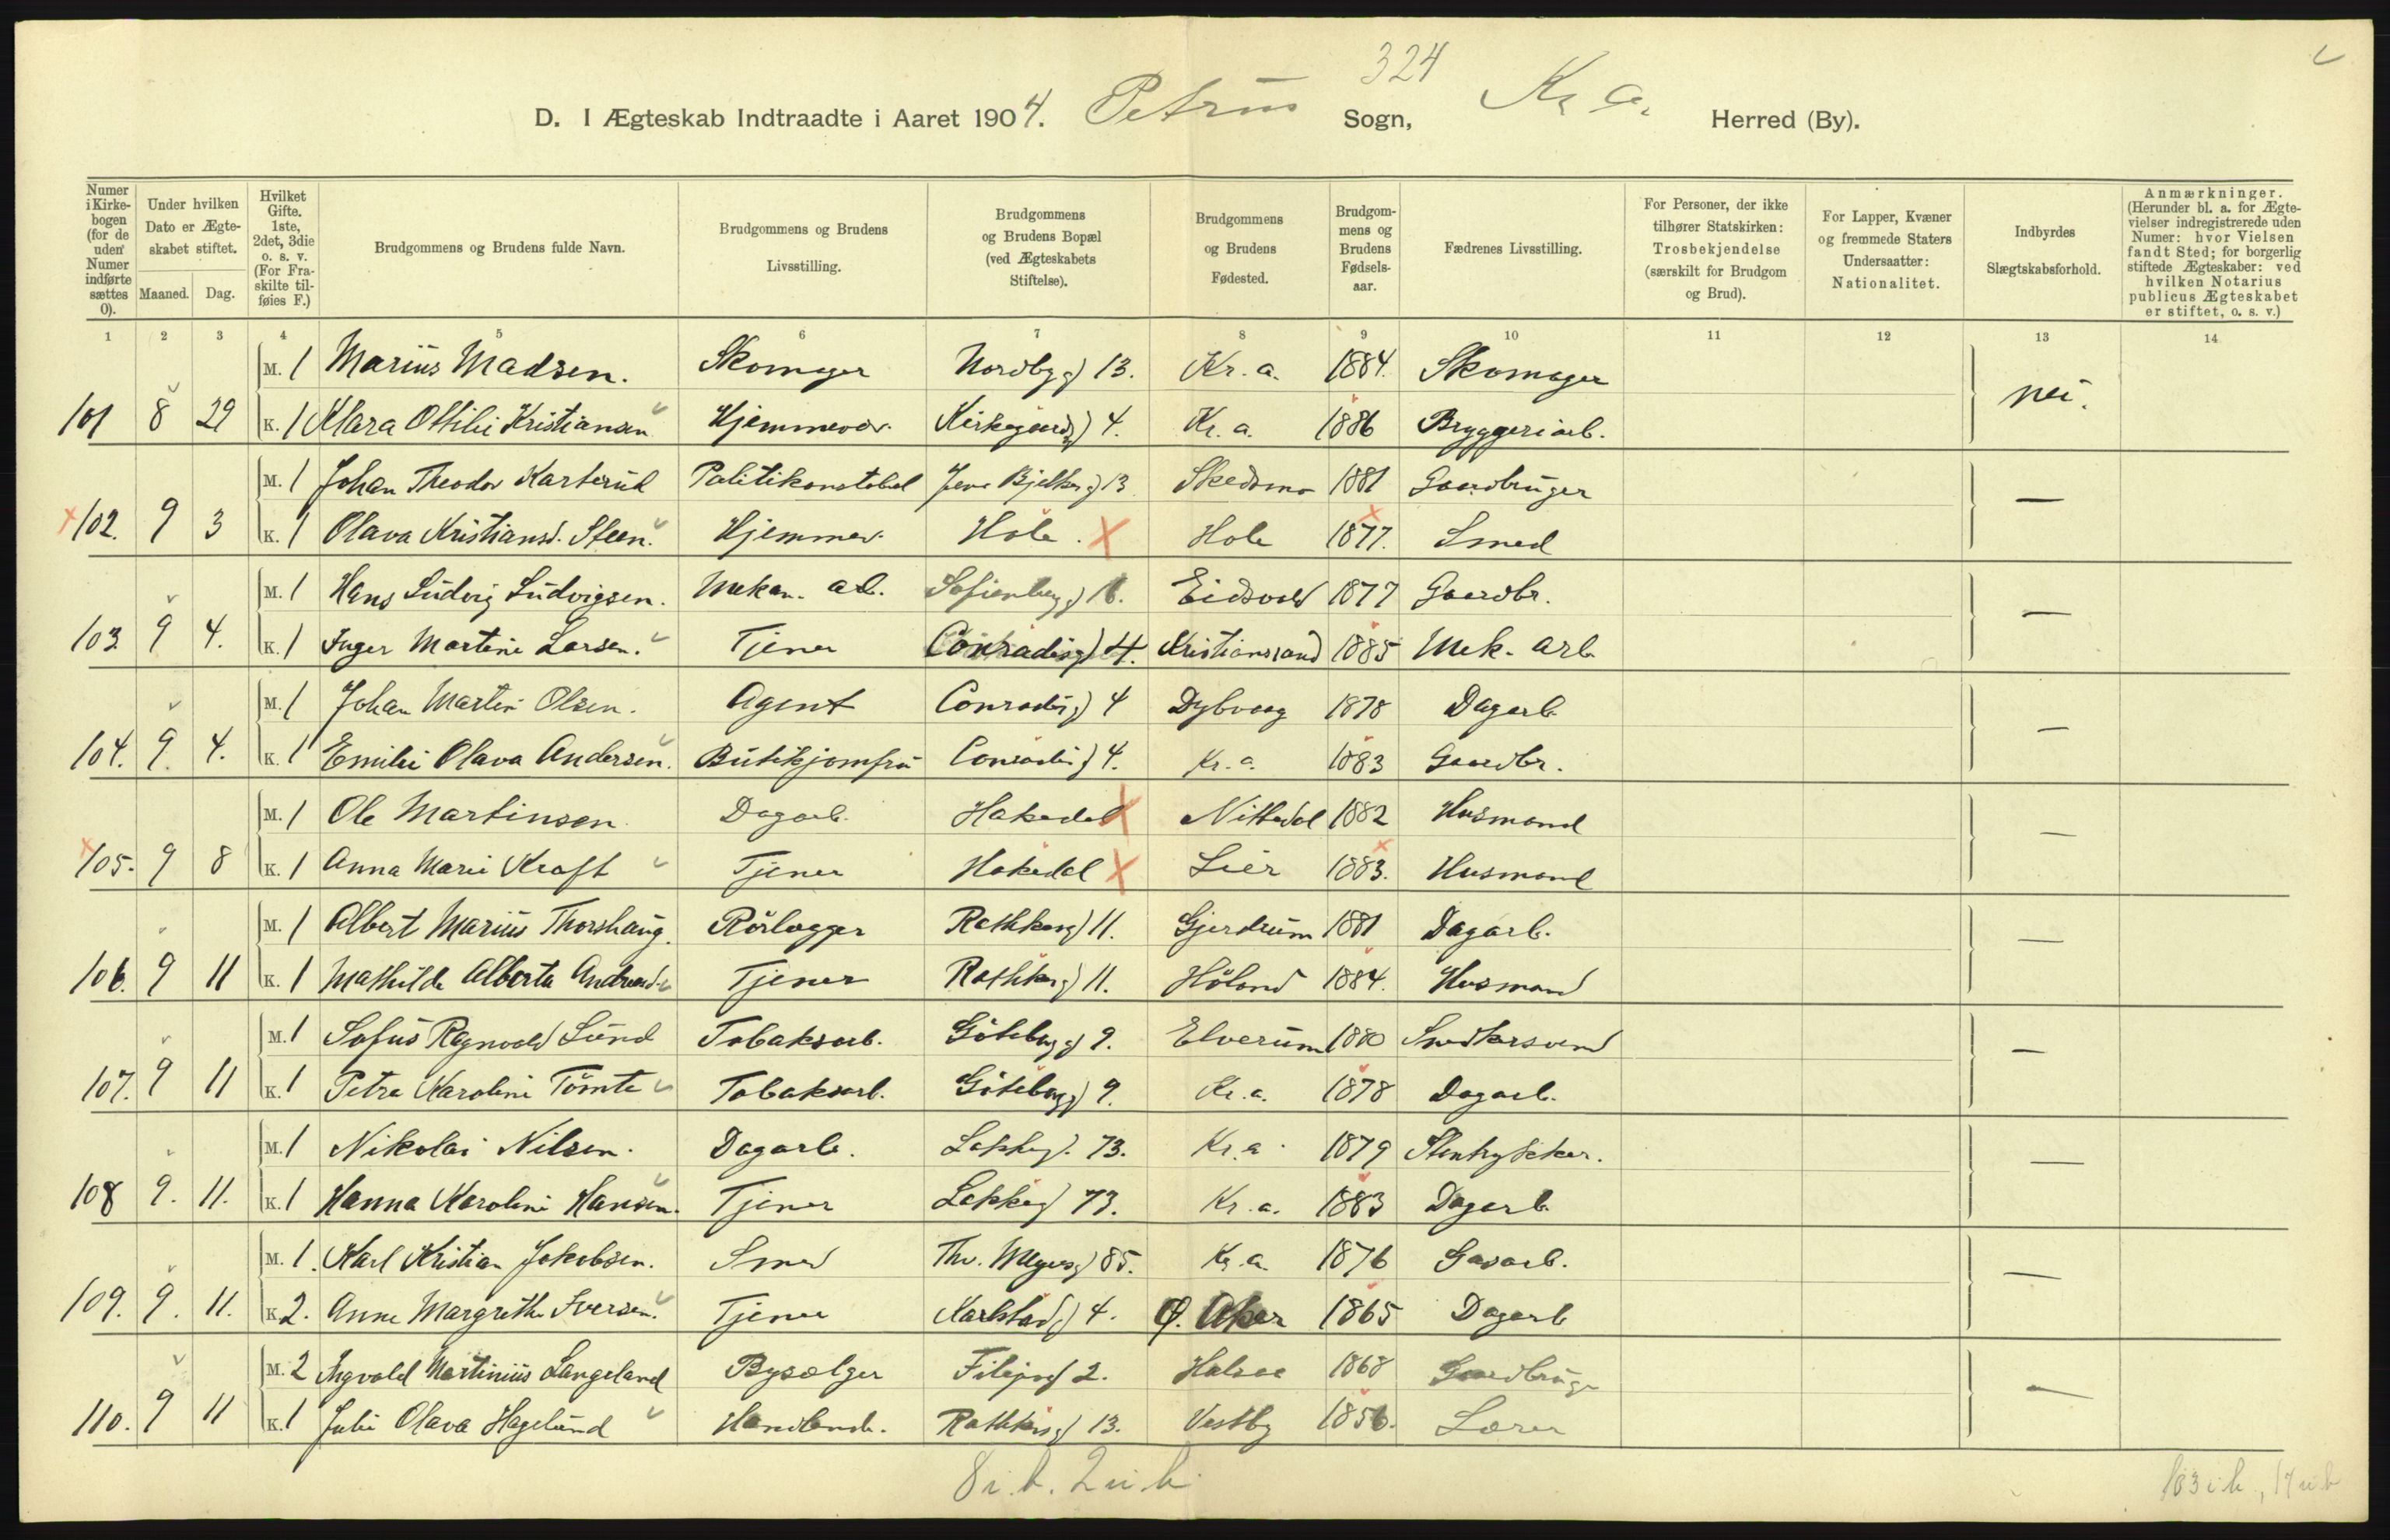 324
D. I Ægteskab Indtraadte i Aaret 1904. Petrus Sogn, Kr. a. Herred (By).
Numer i Kirkebogen (for de uden Numer indførte sættes 0).
Under hvilken Dato er Ægteskabet stiftet.
Maaned. Dag.
Hvilket Gifte. 1ste, 2det, 3die o. s. v. (For Fraskilte tilføies F.)
Brudgommens og Brudens fulde Navn.
Brudgommens og Brudens Livsstilling.
Brudgommens og Brudens Bopæl (ved Ægteskabets Stiftelse).
Brudgommens og Brudens Fødested.
Brudgommens og Brudens Fødselsaar.
Fædrenes Livsstilling.
For Personer, der ikke tilhører Statskirken: Trosbekjendelse (særskilt for Brudgom og Brud).
For Lapper, Kvæner og fremmede Staters Undersaatter: Nationalitet.
Indbyrdes Slægtskabsforhold.
Anmærkninger. (Herunder bl. a. for Ægtevielser indregistrerede uden Numer: hvor Vielsen fandt Sted; for borgerlig stiftede Ægteskaber: ved hvilken Notarius publicus Ægteskabet er stiftet, o. s. v.)
1 2 3 4 5 6 7 8 9 10 11 12 13 14
M. 1 Marius Madsen. Skomager Nordbyg 13. Kr. a. 1884. Skomager
101 8 29 K. 1 Klara Ottilie Kristiansen Hjemmevær. Kirkegaardsg 4. Kr. a. 1886 Bryggeriarb. nei.
M. 1 Johan Theodor Karterud Politikonstabel Jens Bjelkesg 13 Skedsmo 1881 Gaardbruger
102. 9 3 K. 1 Olava Kristiansd. Steen. Hjemmev. Hole. Hole 1877. Smed —
M. 1 Hans Ludvig Ludvigsen. Mekan. arb. Sofienbergg 16. Eidsvold 1877 Gaardbr.
103. 9 4. K. 1 Inger Martine Larsen. Tjener Conradisg 4. Kristianssand 1885 Mek. arb. —
M. 1 Johan Martin Olsen. Agent Conradisg 4 Dybvaag 1878 Dagarb.
104. 9. 4. K. 1 Emilie Olava Andersen. Butikjomfru Conradisg 4. Kr. a. 1883 Gaardbr. —
M. 1 Ole Martinsen Dagarb. Hakedal Nittedal 1882 Husmand
105. 9 8 K. 1 Anna Marie Kraft Tjener Hakedal Lier 1883. Husmand —
M. 1 Albert Marius Thorshaug. Rörlægger Rathkesg 11. Gjerdrum 1881 Dagarb.
106. 9 11 K. 1 Mathilde Alberta Andreasd. Tjener Rathkesg 11. Höland 1884. Husmand —
M. 1 Sofus Ragnvald Lund Tobaksarb. Götebgg 9. Elverum 1880 Snedkersvend
107. 9 11 K. 1 Petra Karoline Tömte Tobaksarb. Götebgg 9. Kr. a. 1878 Dagarb. —
M. 1 Nikolai Nilsen. Dagarb. Lakkeg. 73. Kr. a. 1879 Stentrykker.
108 9. 11. K. 1 Hanna Karoline Hansen. Tjener Lakkeg 73. Kr. a. 1883 Dagarb. —
M. 1. Karl Kristian Jakobsen. Smed Thv. Meyersg 85. Kr. a. 1876 Gasarb.
109. 9. 11. K. 2. Anne Margrethe Iversen. Tjener Karlstadg 4. Ø. Aker 1865 Dagarb —
M. 2 Ingvald Martinius Langeland Bysælger Filipsg 2. Halsaa 1868 Gaardbruger
110. 9 11 K. 1 Julie Olava Hagelund Handlende. Rathkesg 13. Vestby 1856. Lærer —
8 i. b. 2 u. b.
163 i b, 17 u b